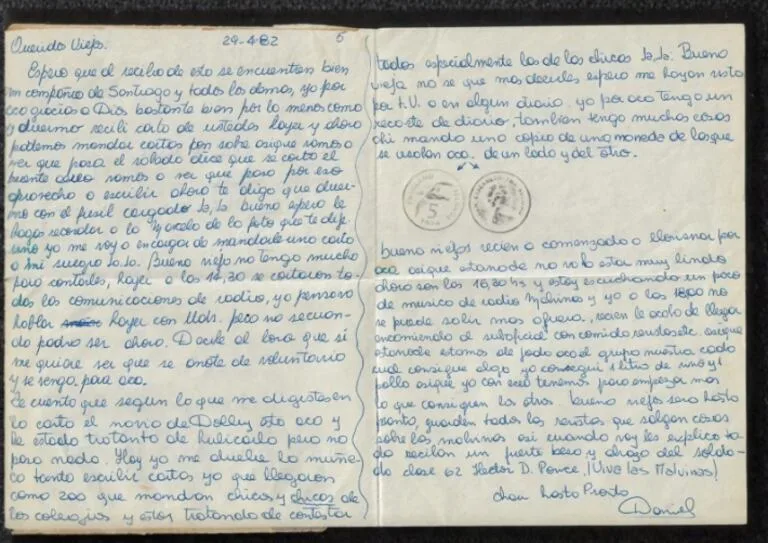 29-4-82 5
Querido Viejo.
Espero que al recibo de esto se encuentren bien
en compañia de Santiago y todos los demas, yo por
aca gracias a Dios bastante bien por lo menos como
y duermo recibi carta de ustedes hayer y ahora
podemos mandar cartas por sobre asique vamos a
ver que pasa el sabado dice que se corta el
puente aereo vamos a ver que pasa por eso
aprovecho a escribir ahora te digo que duer-
mo con el fusil cargado Ja, Ja. bueno espero le
hagas recordar a la Marcela de la foto que te dije
uno yo me voy a encargar de mandarle una carta
a mi suegra Ja. Ja. Bueno viejo no tengo mucho
para contarles, hayer a las 14,30 se cortaron to-
das las comunicaciones de radio, yo pensaba
hablar hayer con Uds. pero no se cuan-
do podra ser ahora. Decile al loro que si
me quiere ver que se anote de voluntario
y se venga para aca.
Te cuento que segun lo que me digistes en
la carta el novio de Dolly esta aca y
he estado tratanto de hubicarlo pero no
pasa nada. Hoy ya me duele la muñe-
ca tanto escribir cartas ya que llegaron
como 200 que mandan chicas y chicos de
los colegios y estoy tratando de contestar
todas especialmente las de las chicas Ja, Ja. Bueno
vieja no se que mas decirles espero me hayan visto
por T.V. o en algun diario. yo por aca tengo un
recorte de diario, tambien tengo muchas cosas
ahi mando una copia de una moneda de las que
se usaban aca. de un lado y del otro.
5
bueno viejos recien a comenzado a lloviznar por
aca asique esta noche no va a estar muy linda
ahora son las 16,30 hs y estoy escuchando un poco
de musica de radio Malvinas y ya a las 18,00 no
se puede salir mas afuera, recien le acabo de llegar
encomienda al suboficial con comida verduras etc. asique
esta noche estamos de joda aca el grupo nuestro cada
cual consigue algo yo consegui 1 litro de vino y 1
pollo asique ya con eso tenemos para empezar mas
lo que consiguen los otros. bueno viejos sera hasta
pronto, guarden todas las revistas que salgan cosas
sobre las malvinas asi cuando voy les explico to-
do reciban un fuerte beso y abrazo del solda-
do clase 62 Hector D. Ponce. ¡Viva las Malvinas!
chau hasta Pronto
Daniel